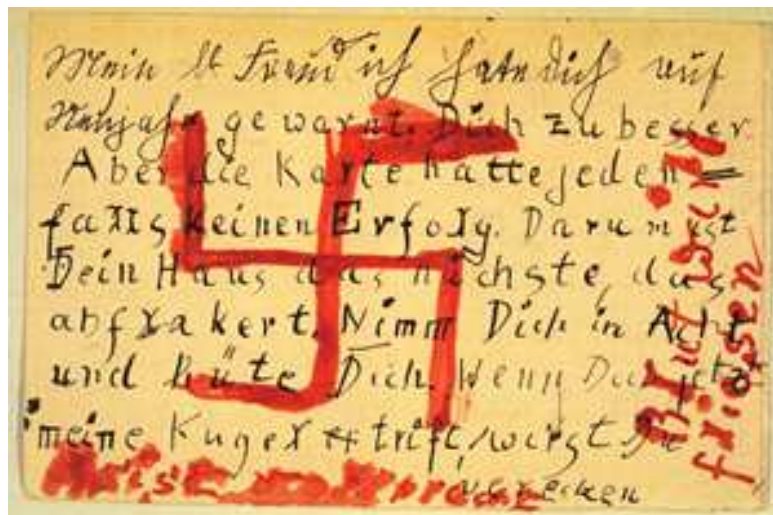 Mein lb Freund ich hate dich auf
Neujahr gewarnt. Dich zu besser
Aber die Karte hatte jeden=
falls keinen Erfolg. Darum ist
Dein Haus das nächste, das
abflakert. Nimm Dich in Acht
und hüte Dich. Wenn jetzt
meine Kugel trift, wirst Du
verecken
Blut wird
fliessen